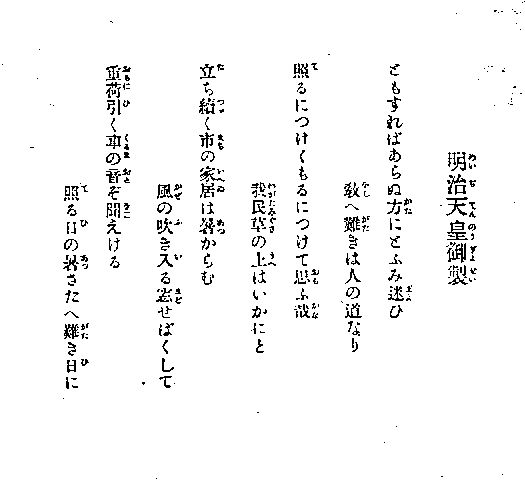 明治天皇御製
ともすればあらぬ方にとふみ迷ひ
教へ難きは人の道なり
照るにつけくもるにつけて思ふ哉
我民草の上はいかにと
立ち續く市の家居は暑からむ
風の吹き入る窓せばくして
重荷引く車の音ぞ聞えける
照る日の暑さたへ難き日に